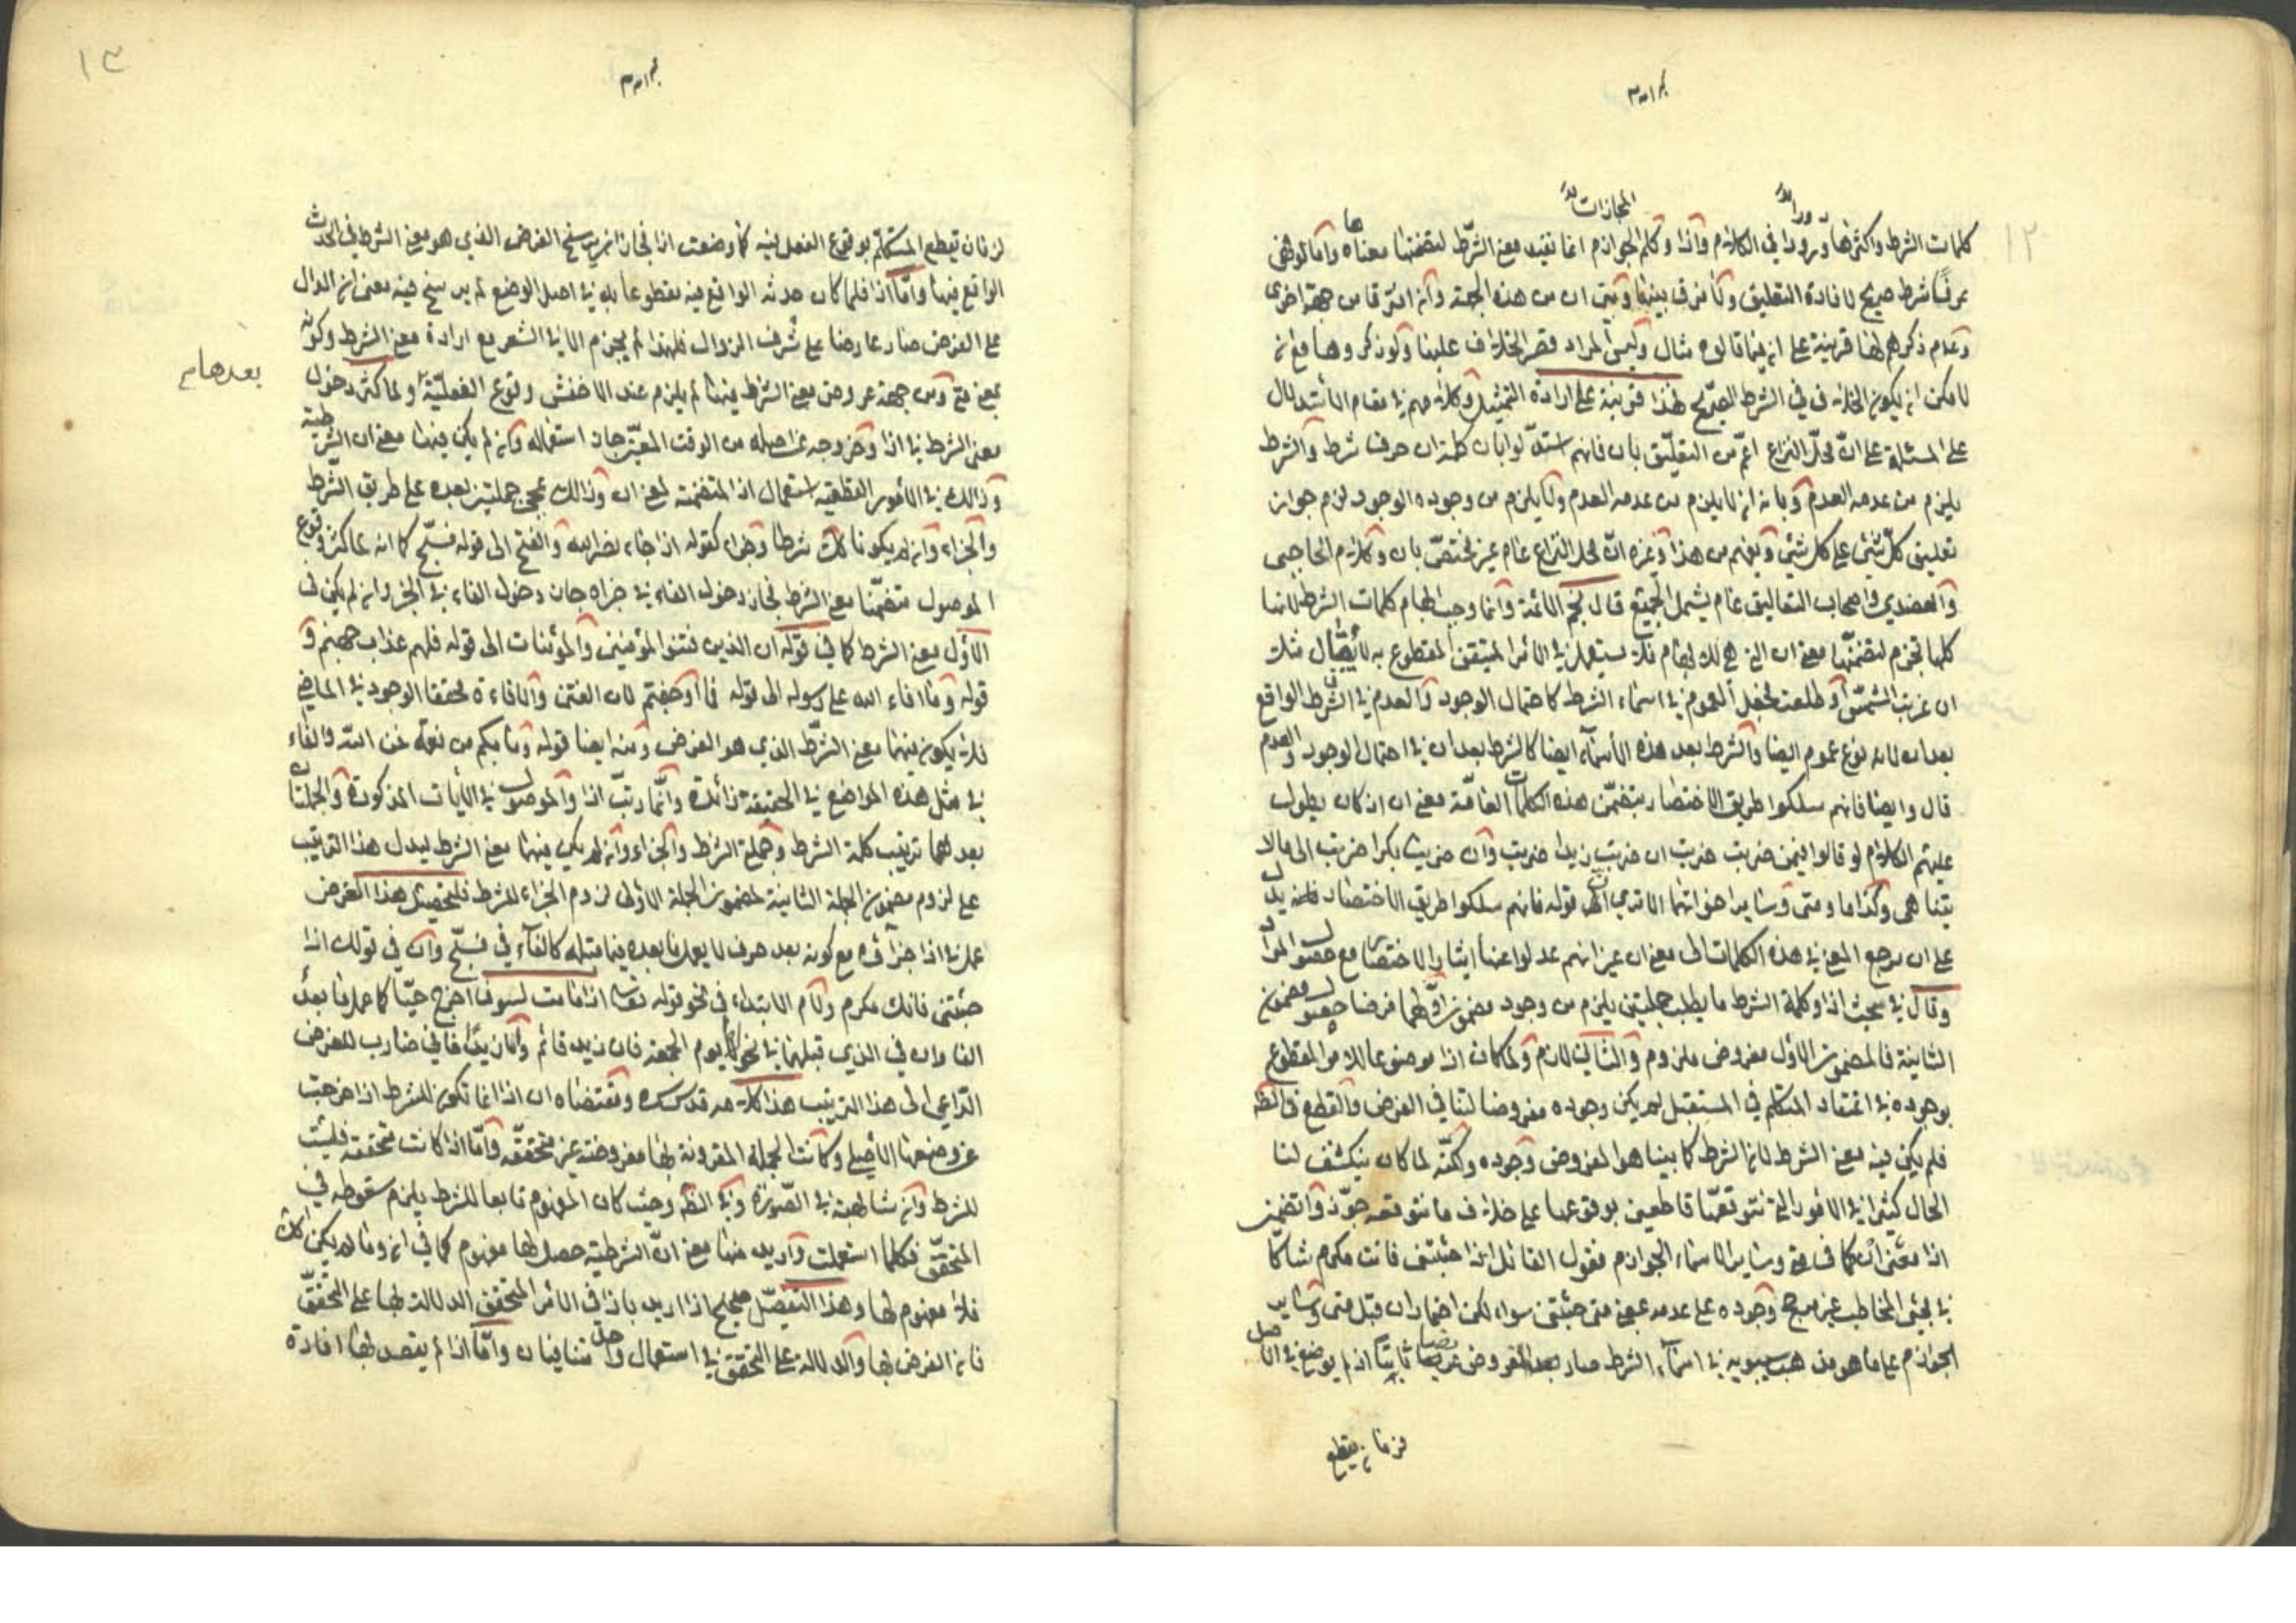 ١٢
كلمات الشرط واكثرها ورودا في الكلام واذا وكلم الجوازم انما تفيد معنى الشرط لتضمنها معناها وامالو فهي
حرف شرط صريح لافادة التعليق ولا فرق بينها وبين ان من هذه الجهة وان افترقا من جهة اخرى
وعدم ذكرهم لها قرينة على ان فيما قالوه مثال وليس المراد قصر الخلاف علينا ولو ذكروها مع ان
لامكن ان يكون الخلاف في الشرط الصريح لهذا قرينة على ارادة التمثيل وكلامهم في مقام الاستدلال
على المسئلة على ان محل النزاع اعم من التعليق بان فانهم استدلوا بان كلمة ان حرف شرط والشرط
يلزم من عدمه العدم وبانه ان لا يلزم من عدمه العدم ولا يلزم من وجوده الوجود لزم جواز
تعليق كل شئ على كل شئ ويفهم من هذا وغيره ان محل النزاع عام غير مختص بان وكلام الحاجبي
والعضدي واصحاب التعاليق عام يشمل الجميع قال نجم الائمة وانما وجب ابهام كلمات الشرط لانها
كلها تجزم لتضمنها معنى ان التي هي للابهام فلا يستعمل في الامر المتيقن المقطوع به لا يقال مثلا
ان غربت الشمس او طلعت فجعل العموم في اسماء الشرط كاحتمال الوجود والعدم في الشرط الواقع
بعد ان لانه نوع عموم ايضا والشرط بعد هذه الاسماء ايضا كالشرط بعد ان في احتمال الوجود والعدم
قال وايضا فانهم سلكوا طريق الاختصار بتضمن هذه الكلمات العامة معنى ان اذ كان يطول
عليهم الكلام لو قالوا فيمن ضربت ضربت ان ضربت زيدا ضربت وان ضربت بكرا ضربت الى مالا
يتناهى وكذا ما ومتى وسائر اخواتهما الا ترى الى قوله فانهم سلكوا طريق الاختصار فانه يدل
على ان مرجع المعنى في هذه الكلمات الى معنى ان غير انهم عدلوا عنها ايثارا للاختصار مع حصول المراد
وقال في بحث اذا وكلمة الشرط ما يطلب جملتين يلزم من وجود مضمون اولهما فرضا حصول مضمون
الثانية فالمضمون الاول مفروض ملزوم والثاني لازم ولما كان اذا موضوعا للامر المقطوع
بوجوده في اعتقاد المتكلم في المستقبل لم يكن وجوده مفروضا لتنافي الفرض والقطع في الظ
فلم يكن فيه معنى الشرط لان الشرط كما بينا هو المفروض وجوده ولكنه لما كان ينكشف لنا
الحال كثيرا في الامور التي نتوقعها قاطعين بوقوعها على خلاف ما نتوقعه جوزوا تضمين
اذا معنى ان كما في متى وسائر الاسماء الجوازم فيقول القائل اذا جئتني فانت مكرم شاكا
في مجئ المخاطب غير مرجح وجوده على عدمه بمعنى متى جئتني سواء لكن اضمار ان قبل متى وسائر
الجوازم على ما هو مذهب سيبويه في اسماء الشرط صار بعد الفروض عريضا ثابتا اذ لم يوضع في الاصل
لزمان يقطع
١٣
لزمان يقطع المتكلم بوقوع الفعل فيه كما وضعت اذا فجاز ان يرسخ الفرض الذي هو معنى الشرط في الحدث
الواقع فيها واما اذا فلما كان حدثه الواقع فيه مقطوعا به في اصل الوضع لم يرسخ فيه معنى ان الدال
على الفرض صار عارضا على شرف الزوال فلهذا لم يجزم الا في الشعر مع ارادة معنى الشرط وكونه
بمعنى متى ومن جهة عروض معنى الشرط فيها لم يلزم عند الاخفش وقوع الفعلية ولما كثر دخول
بعدها
معنى الشرط في اذا وخروجه عن اصله من الوقت المعين جاز استعماله وان لم يكن فيها معنى ان الشرطية
وذلك في الامور القطعية استعمال اذا المتضمنة لمعنى ان وذلك لمجئ جملتين بعده على طريق الشرط
والجزاء وان لم يكونا شرطا وجزاء كقوله اذا جاء نصر الله والفتح الى قوله فسبح كما انه لما كثر وقوع
الموصول متضمنا معنى الشرط فجاز دخول الفاء في خبره جاز دخول الفاء في الخبر وان لم يكن في
الاول معنى الشرط كما في قوله ان الذين فتنوا المؤمنين والمؤمنات الى قوله فلهم عذاب جهنم و
قوله وما افاء الله على رسوله الى قوله فما اوجفتم لان الفتن والافاءة تحققا الوجود في الماضي
فلا يكون فيهما معنى الشرط الذي هو الفرض ومنه ايضا قوله وما بكم من نعمة فمن الله والفاء
في مثل هذه المواضع في الحقيقة زائدة وانما رتب اذا والموصول في الآيات المذكورة والجملتان
بعدهما ترتيب كلمة الشرط وجملة الشرط والجزاء وان لم يكن فيهما معنى الشرط ليدل هذا الترتيب
على لزوم مضمون الجملة الثانية لمضمون الجملة الاولى لزوم الجزاء للشرط فلتحصيل هذا الغرض
عمل في اذا جزاؤه مع كونه بعد حرف لا يعمل ما بعده فيما قبله كالفاء في فسبح وان في قولك اذا
جئتني فانك مكرم ولام الابتداء في نحو قوله تعالى ائذا ما مت لسوف اخرج حيا كما عمل ما بعد
الفاء وان في الذي قبلهما في نحو اما يوم الجمعة فان زيد قائم واما زيدا فاني ضارب للغرض
الداعي الى هذا الترتيب هذا كلامه قدس سره ومقتضاه ان اذا انما تكون للشرط اذا خرجت
عن وضعها الاصلي وكانت الجملة المقرونة بها مفروضة غير متحققة واما اذا كانت متحققة فليست
للشرط وان شابهته في الصورة وفي الظ وحيث كان المفهوم تابعا للشرط يلزم سقوطه في
المتحقق فكلما استعملت واريد منها معنى ان الشرطية حصل لها مفهوم كما في ان وما لم يكن كذلك
فلا مفهوم لها وهذا التفصيل صحيح اذا اريد باذا في الامر المتحقق الدلالة بها على التحقق
فان الفرض بها والدلالة على التحقق في استعمال واحد متنافيان واما اذا لم يقصد بها افادة